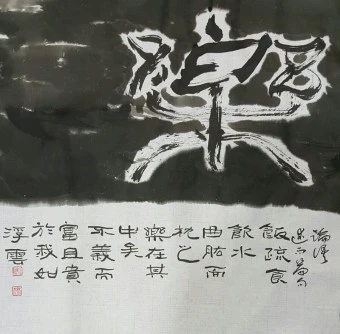 樂
論語
述而篇句
飯疏食
飲水
曲肱而
枕之
樂在其
中矣
不義而
富且貴
於我如
浮雲